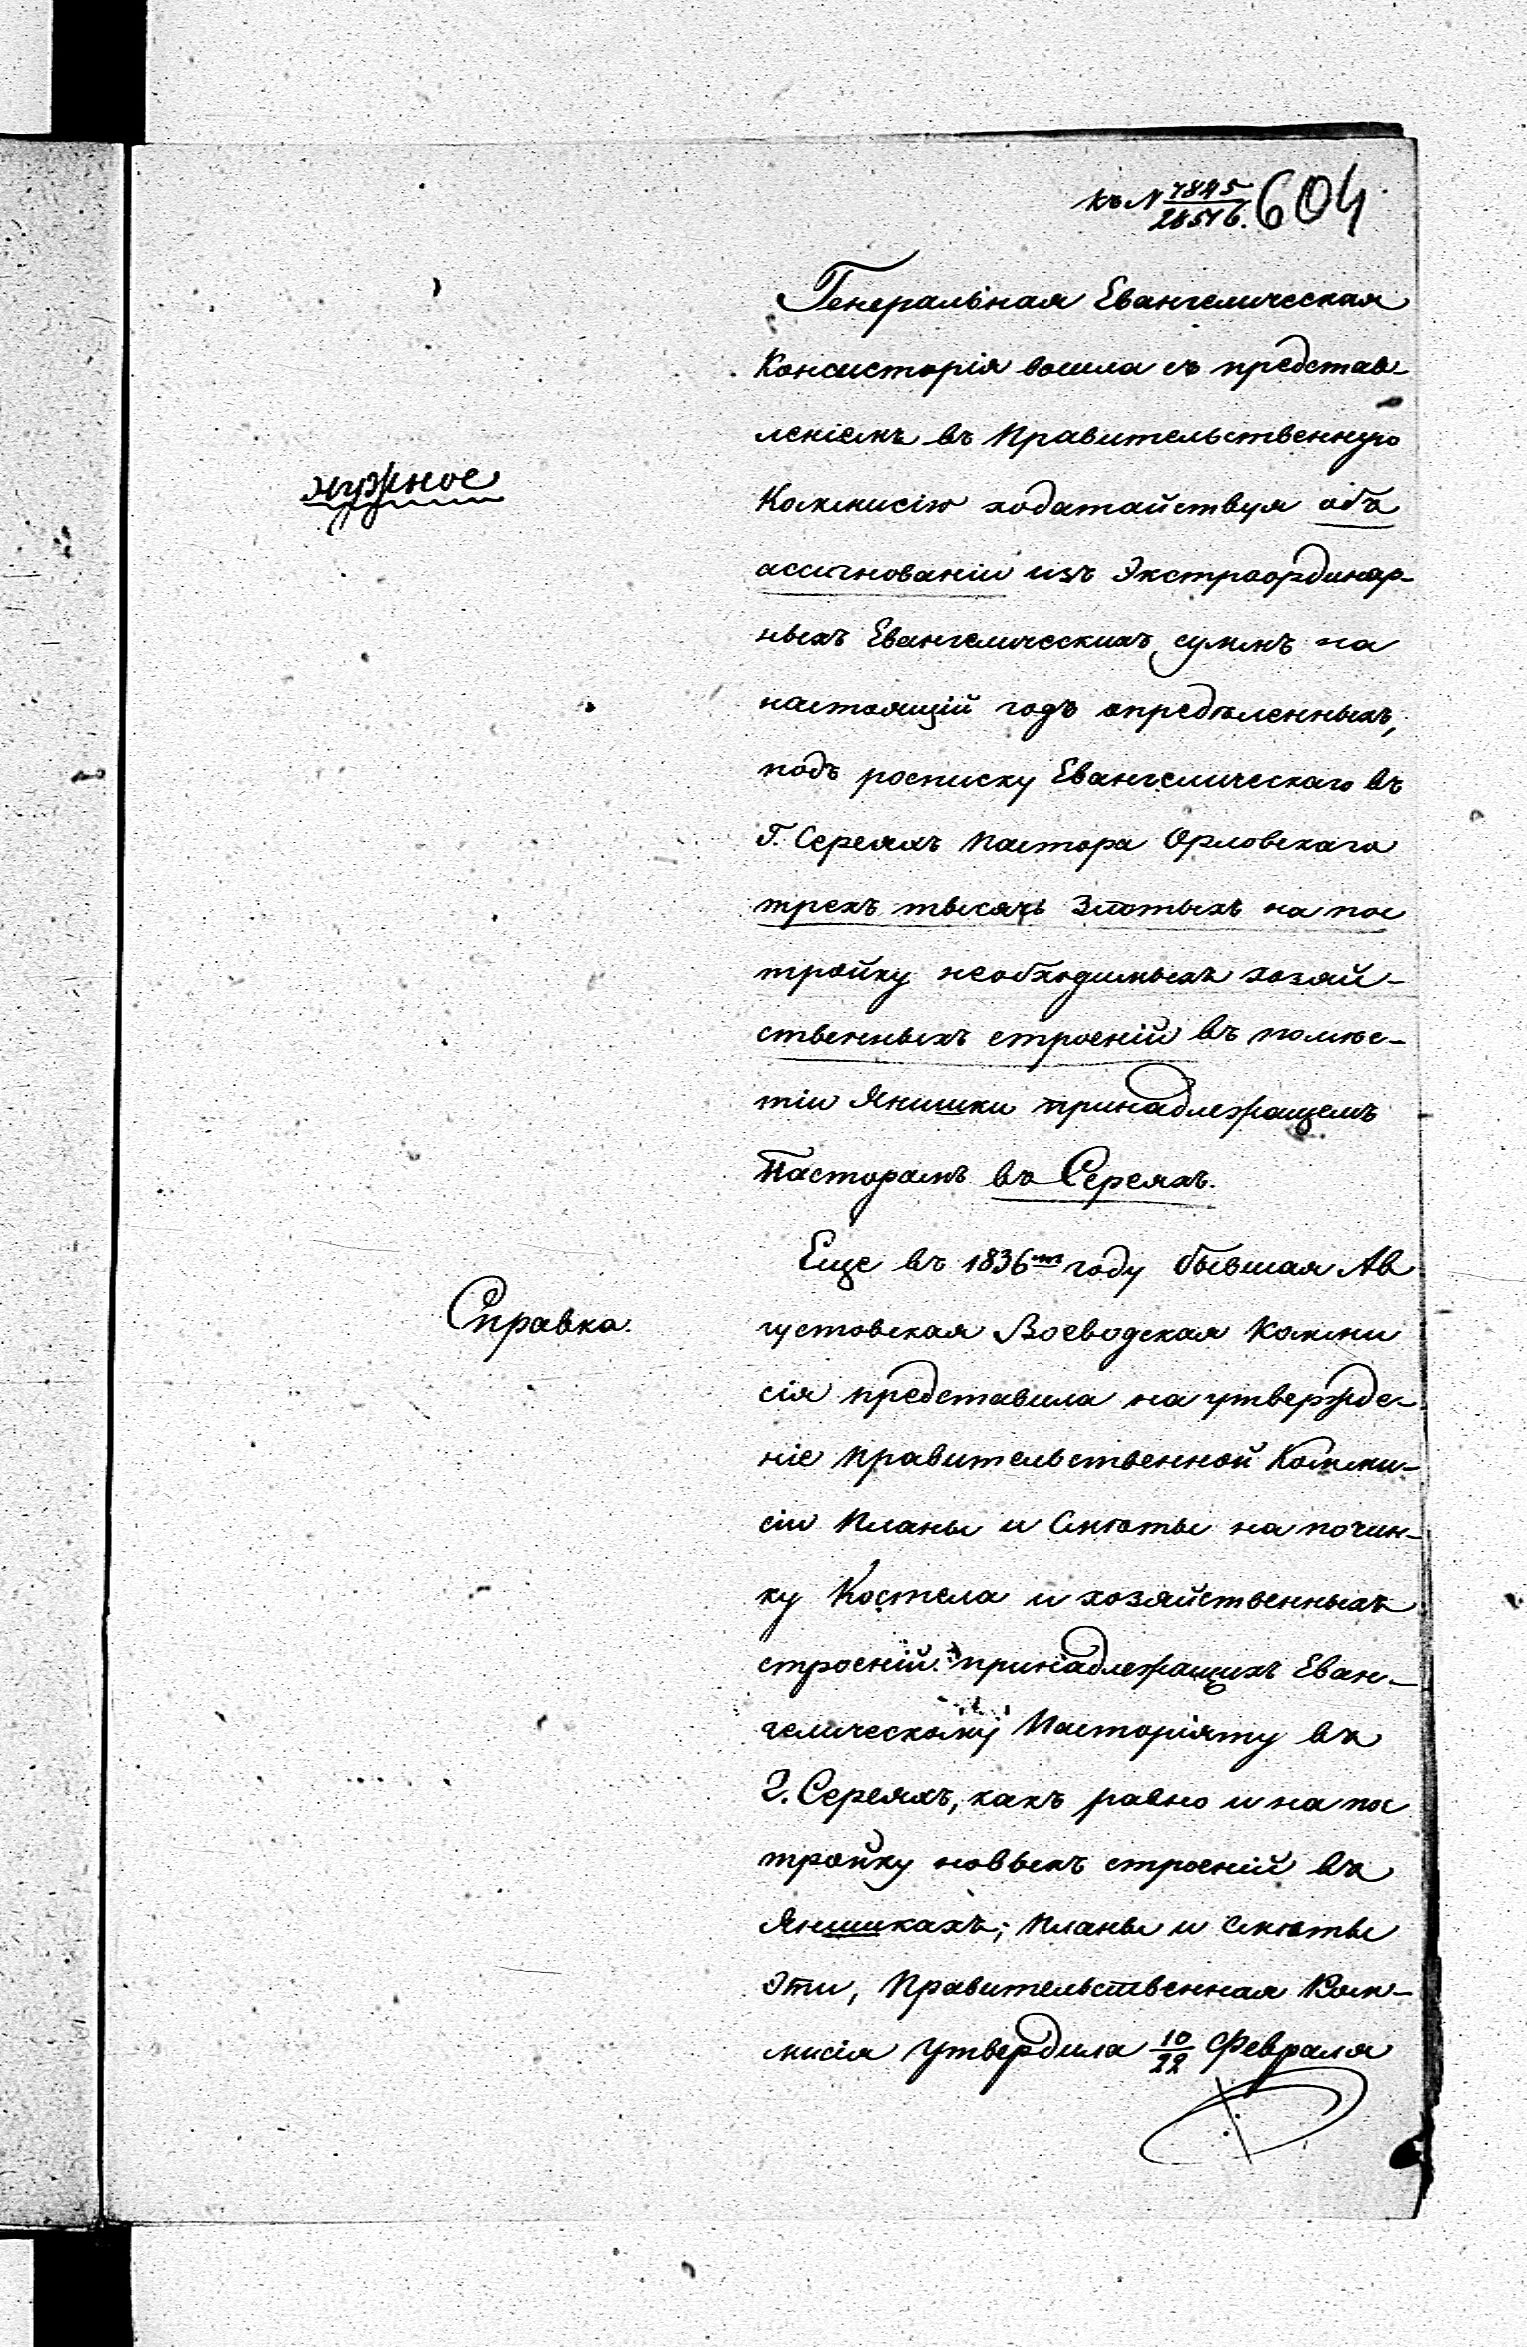 къ N 7845/28516. 604
Генеральная Евангелическая
Консисторія вошла съ представ-
леніемъ въ Правительственную
нужное
Коммисію ходатайствуя объ
ассигнованіи изъ Экстраординар-
ныхъ Евангелическихъ суммъ на
настоящій годъ опредѣленныхъ,
подъ росписку Евангелическаго въ
Г. Сереяхъ Пастора Орловскаго
трехъ тысячь Злотыхъ на пос
тройку необходимыхъ хозяй-
ственныхъ строеній въ помѣс-
тіи Янишки принадлежащемъ
Пасторамъ въ Сереяхъ.
Еще въ 1836мъ году бывшая Ав
Справка.
густовская Воеводская Комми
сія представила на утвержде-
ніе Правительственной Комми-
сіи Планы и Смѣты на почин-
ку Костела и хозяйственныхъ
строеній принадлежащихъ Еван-
гелическому Пасторіяту въ
Г. Сереяхъ, какъ равно и на пос
тройку новыхъ строеній въ
Янишкахъ; Планы и Смѣты
эти, Правительственная Ком-
мисія утвердила 10/22 Февраля